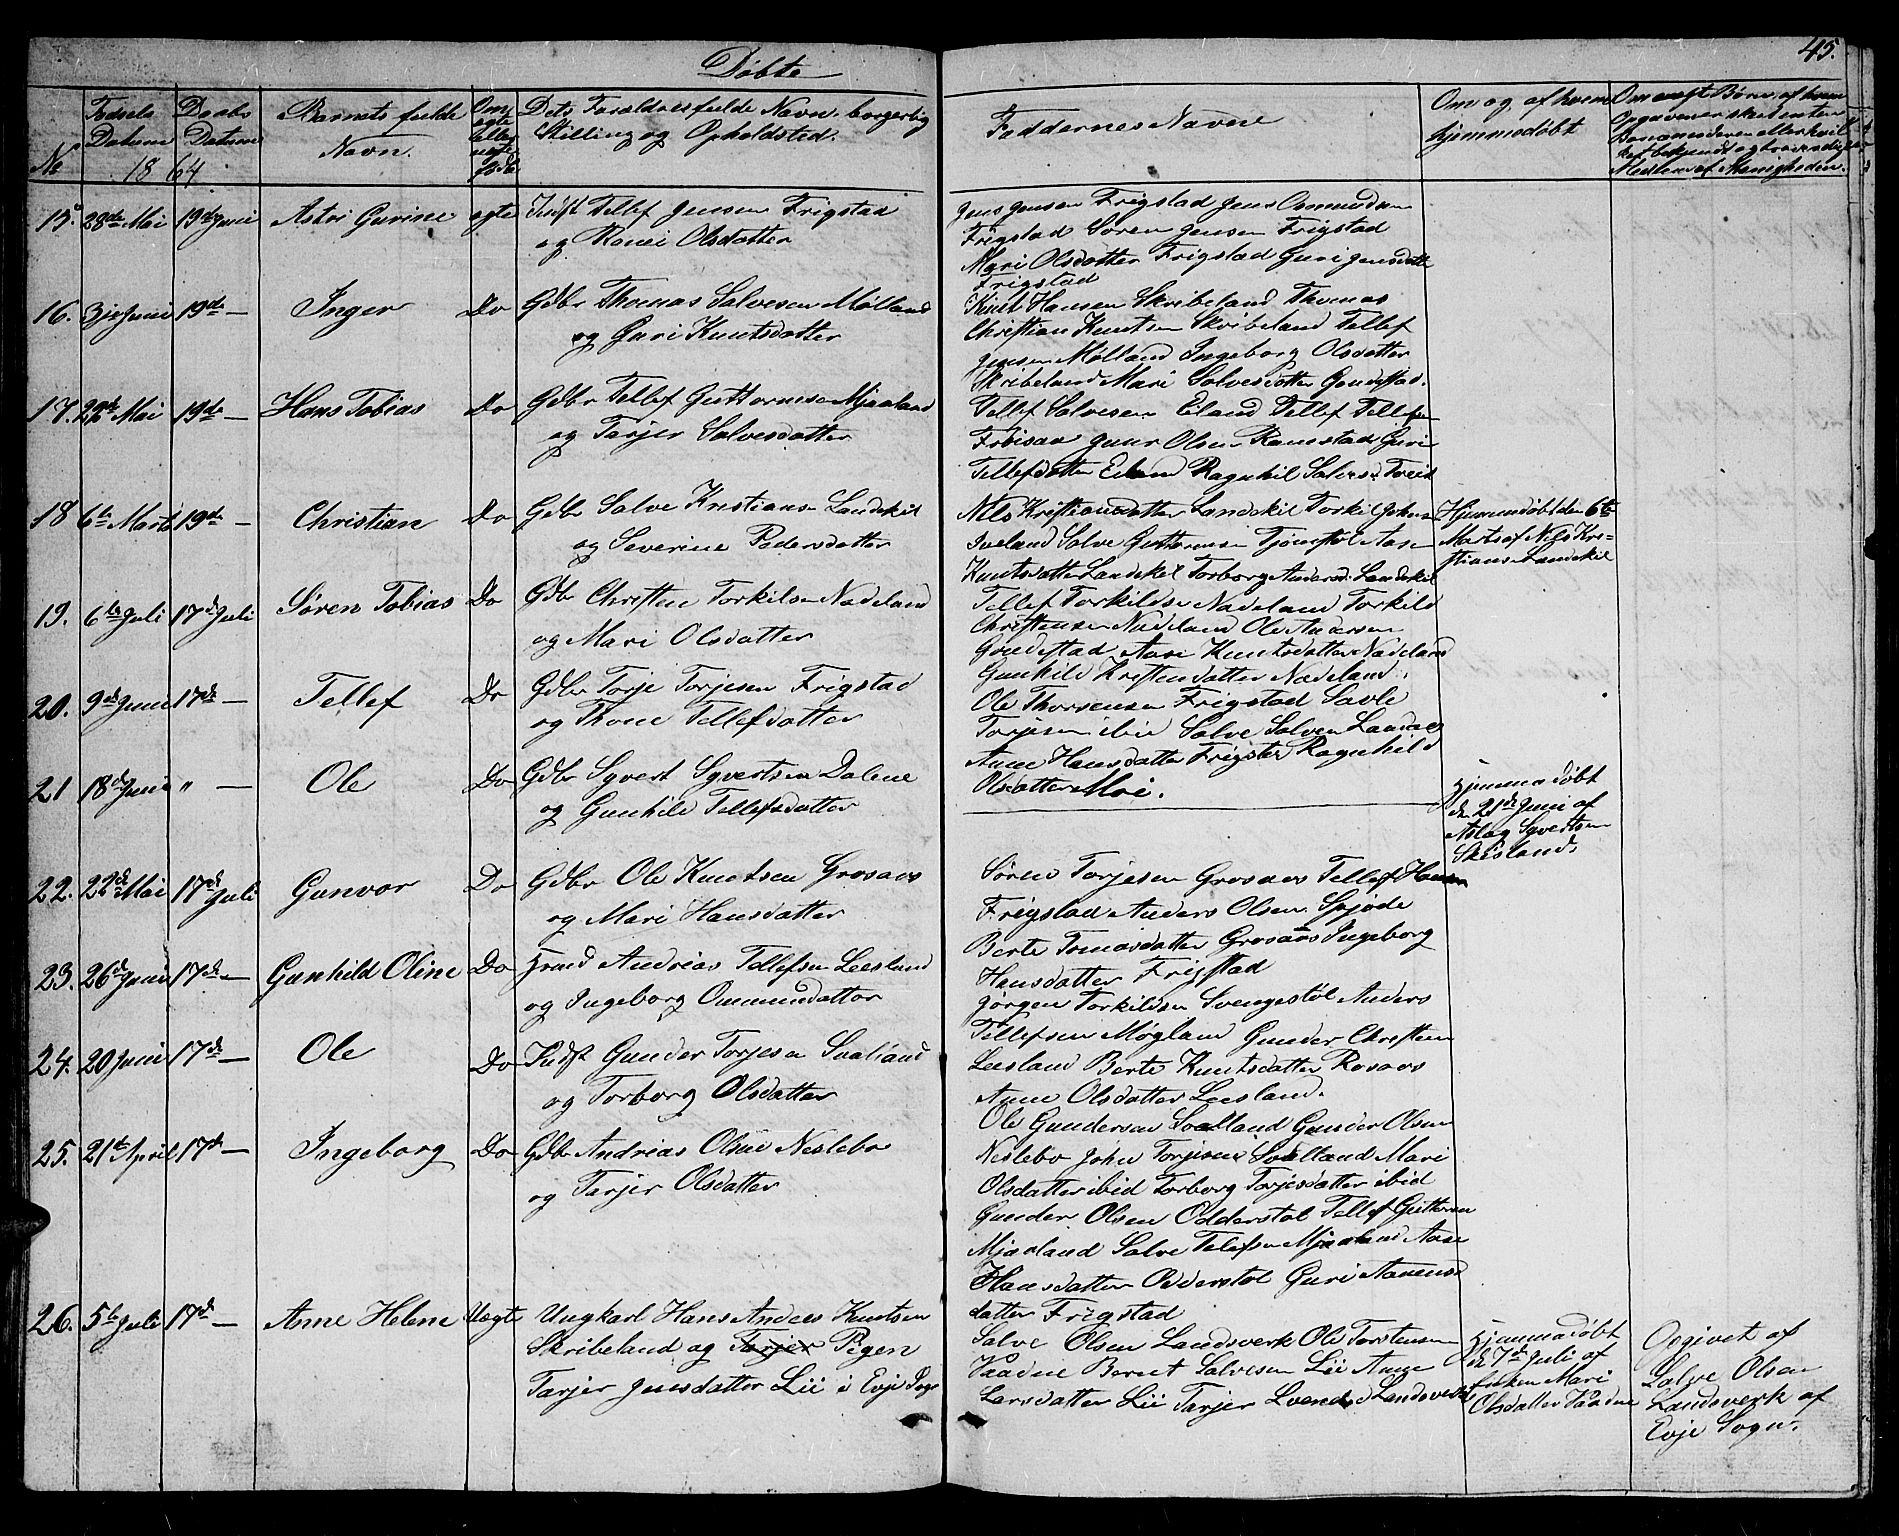 45.
Døbte
No
Fødsels Datum
Daabs Datum
1864
Barnets fulde Navn.
Om ægte eller uægte født
Dets Forældres fulde Navn, borgerlig
Stilling og Opholdsted.
Faddernes Navne
Om og af hvem
hjemmedøbt
15. 28de Mai 19de Juni Astri Gurine ægte Inderst Tellef Jensen Frigstad
og Ronei Olsdatter
Jens Jensen Frigstad Jens Ommundsen
Frigstad Søren Jensen Frigstad
Mari Olsdatter Frigstad Guri Jensdatter
Frigstad
16. 3die Juni 19de — Inger Do Gdbr Thomas Salvesen Mølland
og Guri Knutsdatter
Knut Hansen Skribeland Thomas
Christian Knutsen Skribeland Tellef
Jensen Mølland Ingeborg Olsdatter
Skribeland Mari Salvesdatter
17. 22de Mai 19de — Hans Tobias Do Gdbr Tellef Guttormsen Mjaaland
og Tarjer Salvesdatter
Tellef Salvesen Eiland Tellef Tellefsen
Frøisaa Gunr Olsen Ramstad Guri
Tellefsdatter Eiland Ragnhil
18 6te Marts 19de — Christian Do Gdbr Salve Kristiansen Landskil
og Severine Pedersdatter
Nils Kristiansdatter Landskil Torkil Johnsen
Iveland Salve Guttormsen Tjomstøl Aase
Knutsdatter Landskil Torborg Andersd. Landskil
Hjemmedøbt den 6te
Marts af Nils Kri-
stiansen Landskil
19. 6te Juli 17de Juli Søren Tobias Do Gdbr Christen Torkilsen Nadeland
og Mari Olsdatter
Tellef Torkildsen Nadeland Torkild
Christensen Nadeland Ole Andersen
Gaudestad Aase Knutsdatter Nadeland
Gunhild Kristensdatter Nadeland.
20. 9de Juni 17de — Tellef Do Gdbr Torje Torjesen Frigstad
og Thone Tellefsdatter
Ole Thorsensen Frigstad Savle
Torjesen ibid Salve Salvesen Landaas
Anne Hansdatter Frigstad Ragnhild
Olsdatter Moi.
21 18de Juni " — Ole Do Gdbr Syvert Syvertsen Dalene
og Gunhild Tellefsdatter
Hjemmedøbt
den 21de Juni af
Aslag Syvertsen
Skisland.
22. 22de Mai 17de Juli Gunvor Do Gdbr Ole Knutsen Grosaas
og Mari Hansdatter
Søren Torjesen Grosaas Tellef Hansen
Frigstad Anders Olsen
Berte Tomasdatter Grosaas Ingeborg
Hansdatter Frigstad
23. 26de Juni 17de — Gunhild Oline Do Hmd Andrias Tellefsen Leesland
og Ingeborg Ommundsdatter
Jørgen Torkildsen Svengestøl Anders
Tellefsen Møgland Gunder Christensen
Leesland Berte Knutsdatter Rosaas
Anne Olsdatter Leesland.
24. 20 Juni 17de — Ole Do Indst Gunder Torjesen Svaland
og Torborg Olsdatter
Ole Gundersen Svalland Gunder Olsen
Neslebo John Torjesen Svalland Mari
Olsdatter ibid Torborg Torjesdatter ibid
25. 21de April 17de — Ingeborg Do Gdbr Andrias Olsen Neslebo
og Tarjer Olsdatter
Gunder Olsen Odderstøl Tellef Guttormsen
Mjaaland Salve Telefsen Mjaaland Aase
Hansdatter Odderstøl Guri Aanens
datter Frigstad
26. 5te Juli 17de — Anne Helene Uægte Ungkarl Hans Andres Knutsen
Skribeland og Tarjer Pigen
Tarjer Jensdatter Lii i Evje Sogn
Salve Olsen Landsverk Ole Torstensen
Vaadne Bernt Salvesen Lii Anne
Larsdatter Lii Tarjer Landsverk
Hjemmedøbt
den 7de Juli af
Enken Mari
Olsdatter Vaadne
Opgivet af
Salve Olsen
Landsverk af
Evje Sogn.